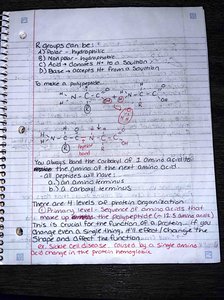 R groups can be:
A) Polar - hydrophilic
B) Nonpolar - hydrophobic
C) Acid → donates H+ to a solution
D) Base → accepts H+ from a solution
To make a polypeptide
You always bond the carboxyl of 1 amino acid to
the amino of the next amino acid.
- all peptides will have:
a.) an amino terminus
b.) a carboxyl terminus
There are 4 levels of protein organization
① Primary level - sequence of amino acids that
make up the polypeptide
This is crucial for the function of a protein - if you
change even a single thing, it'll effect/change the
shape and affect the function
ex: sickle cell disease, caused by a single amino
acid change in the protein hemoglobin